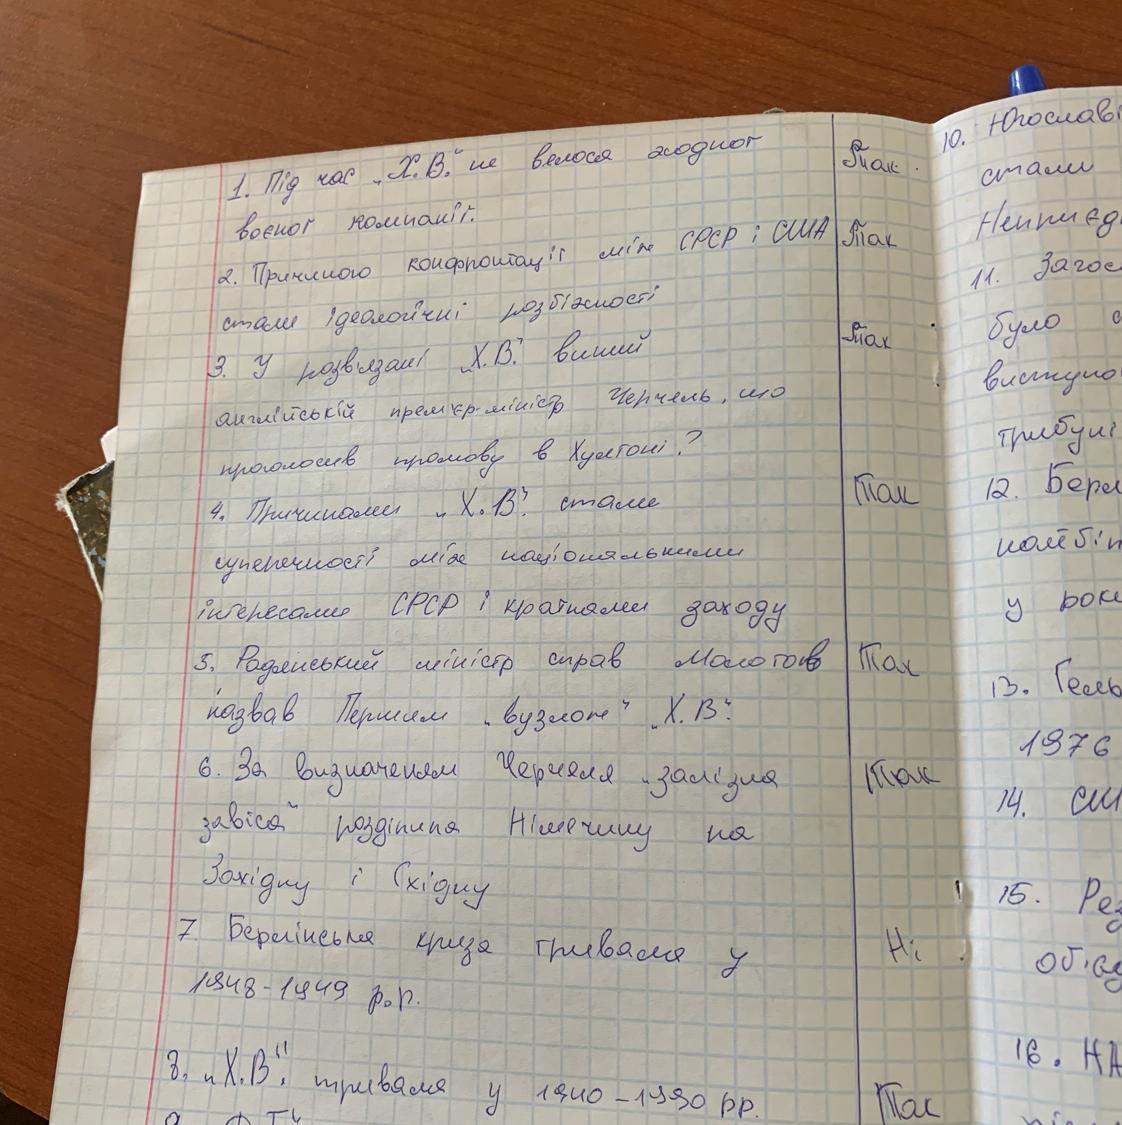 1. Під час „Х.В.“ не велося жодної
воєної компанії.
Так.
2. Причиною конфронтації між СРСР і США
Так
стали ідеологічні розбіжності
3. У розв'язані „Х.В.“ винний
Так
англійській премєр-міністр Черчель, що
проголосив промову в Хултоні?
4. Причинами „Х.В.“ стали
Так
суперечності між національними
інтересами СРСР і країнами заходу
5. Радянський міністр справ Молотов
Так
назвав Першим „вузлом“ „Х.В.“
6. За визначеням Черчеля „залізна
Так
завіса“ розділила Німечину на
Західну і Східну
7. Берлінська криза тривала у
Ні
1948-1949 р.р.
8. „Х.В.“ тривала у 1940-1990 рр.
Так
9.
10. Югославі
стали
Неприєд
11. Загос
було
виступо
трибуні
12. Берл
найбіл
у рок
13. Гель
1976
14. СШ
15. Рез
обсу
16. НА